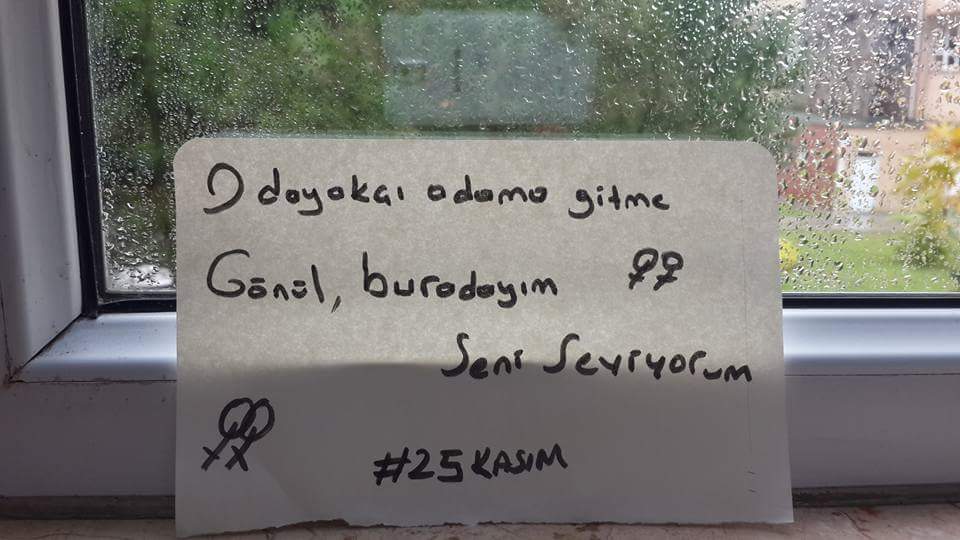 O dayakçı adama gitme
Gönül, buradayım ⚢
Seni Seviyorum
⚢
#25 KASIM